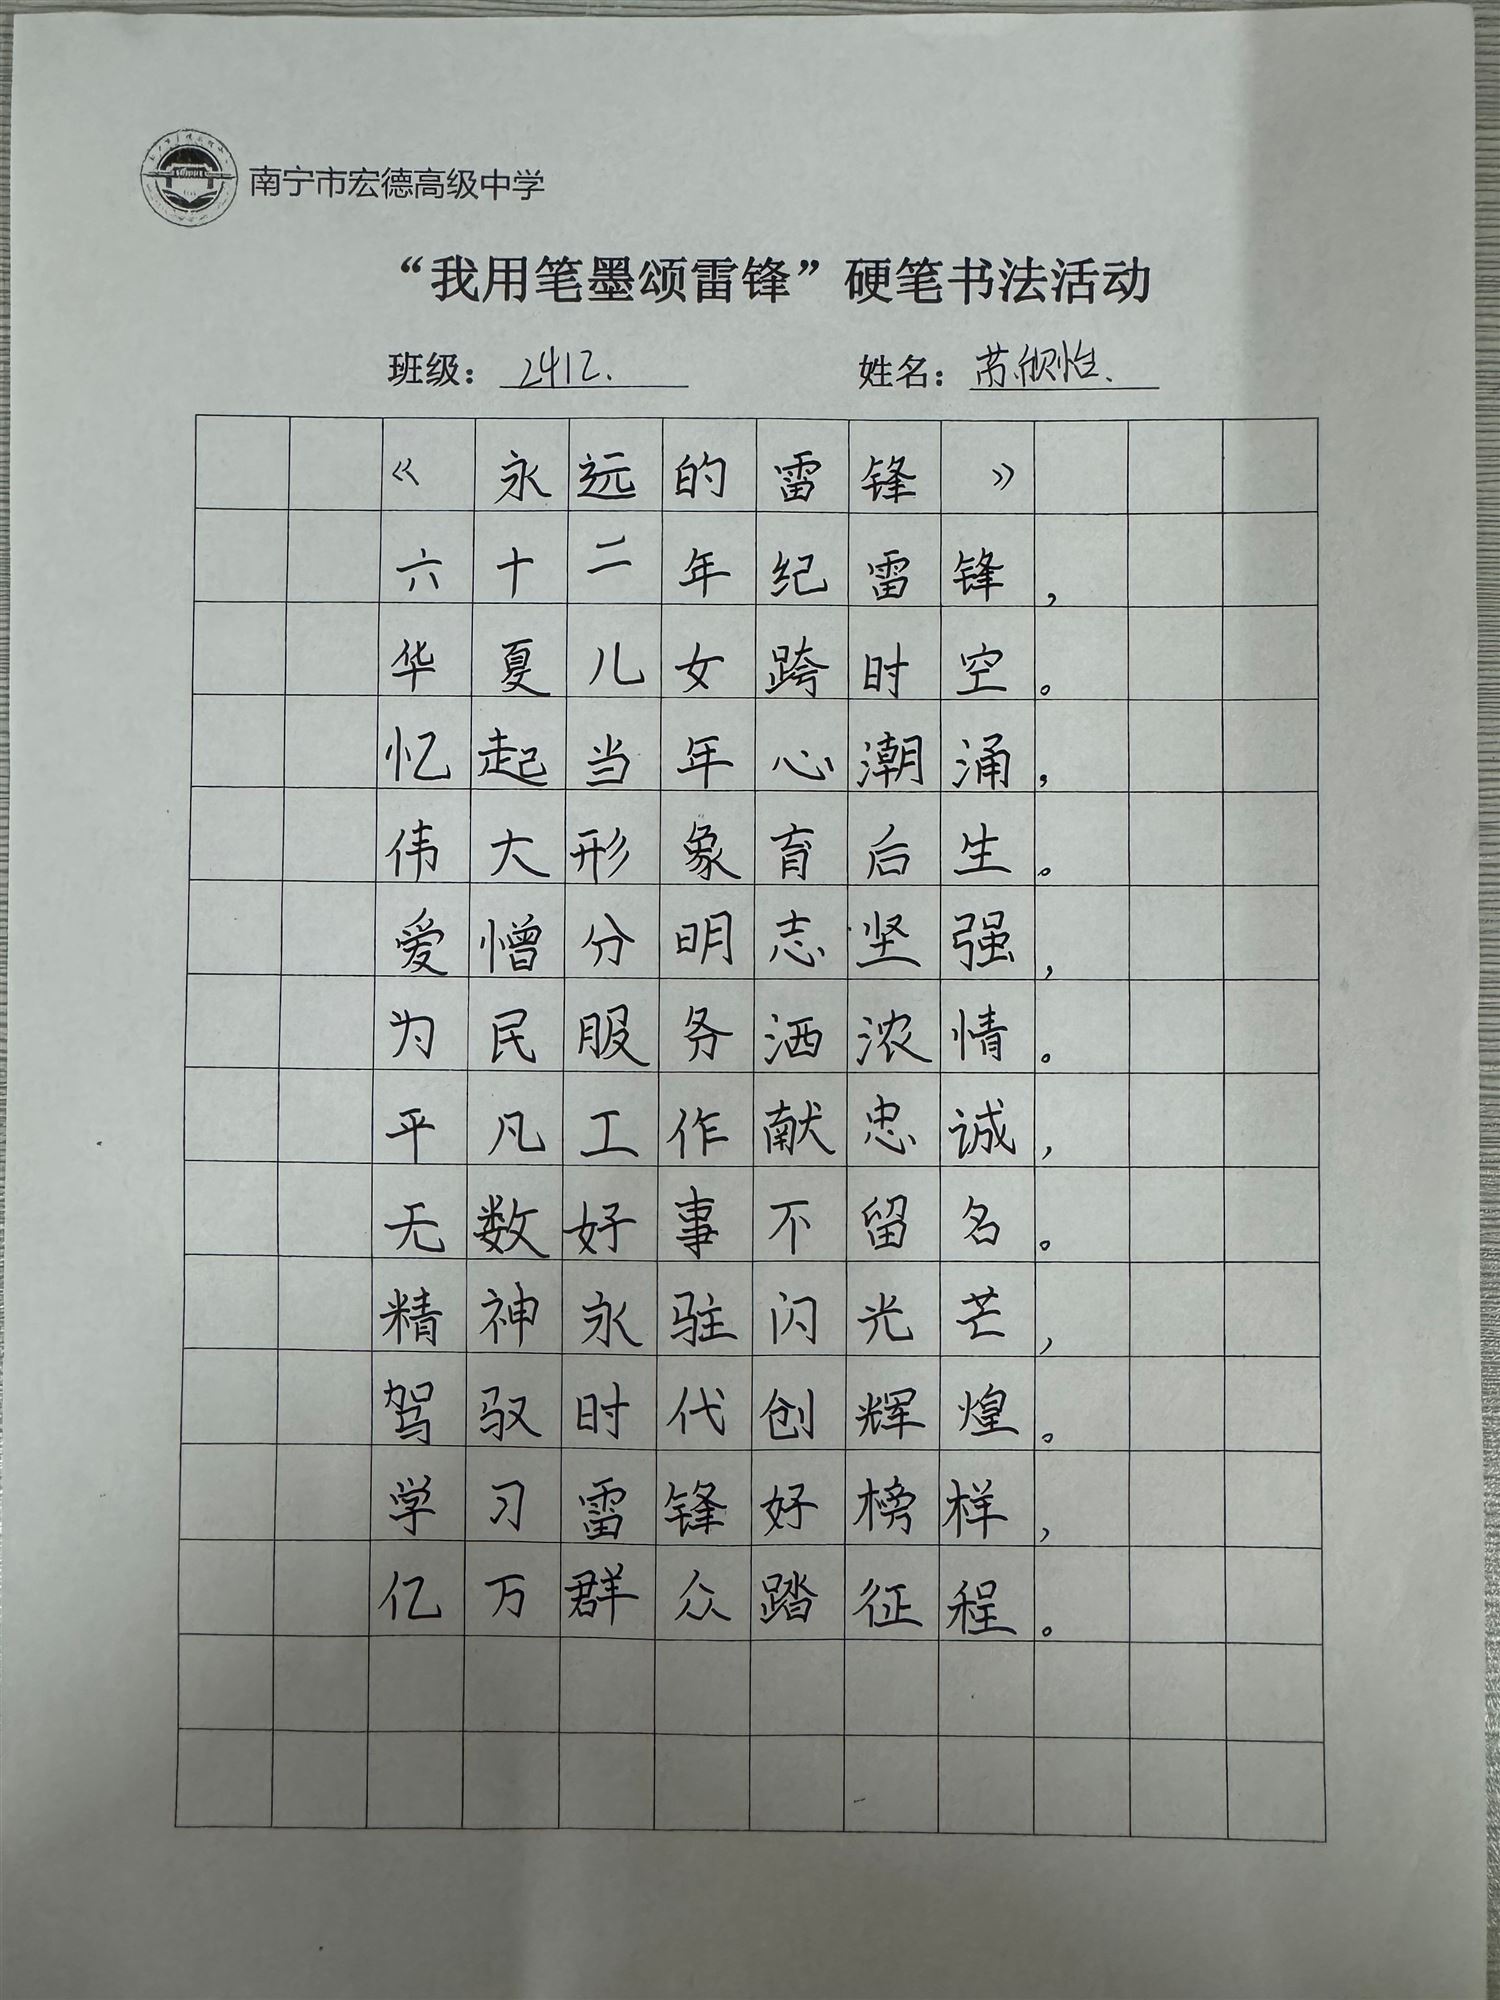 南宁市宏德高级中学
“我用笔墨颂雷锋”硬笔书法活动
班级：2412. 姓名：苏欣怡.
《永远的雷锋》
六十二年纪雷锋，
华夏儿女跨时空。
忆起当年心潮涌，
伟大形象育后生。
爱憎分明志坚强，
为民服务洒浓情。
平凡工作献忠诚，
无数好事不留名。
精神永驻闪光芒，
驾驭时代创辉煌。
学习雷锋好榜样，
亿万群众踏征程。